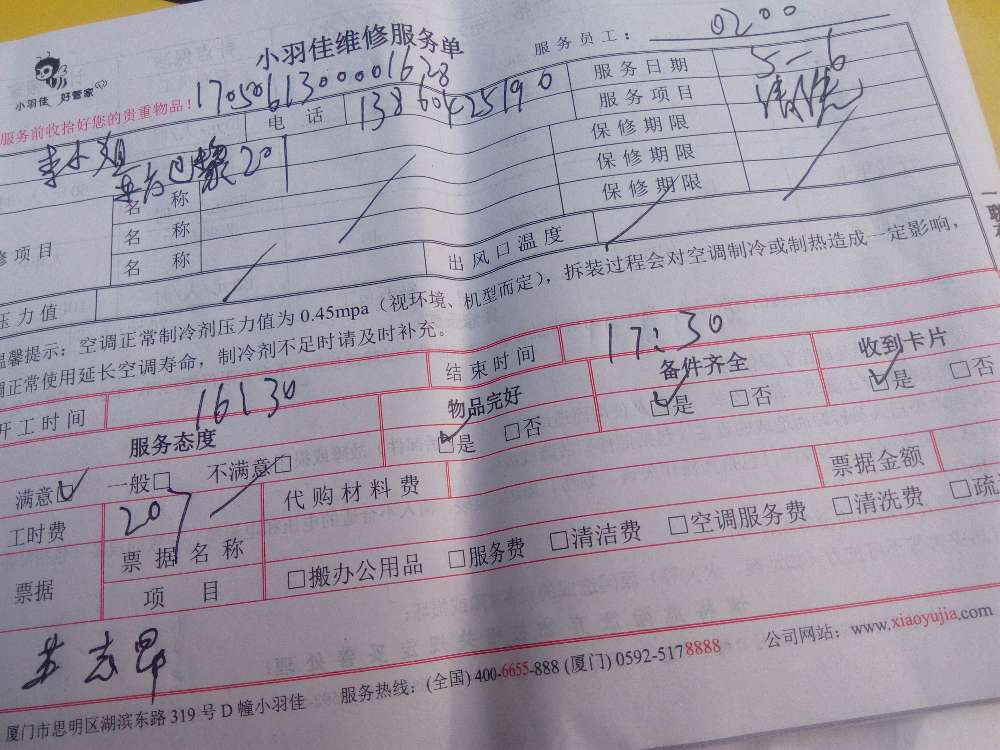 小羽佳维修服务单
服务员工： 0200
小羽佳 好管家
服务前收拾好您的贵重物品！ 17050613000001628
服务日期 5-6
李小姐 电话 13860425190
服务项目 清洗
201
保修期限
名称
保修期限
修项目 名称
保修期限
名称
压力值 出风口温度
温馨提示：空调正常制冷剂压力值为 0.45mpa（视环境、机型而定），拆装过程会对空调制冷或制热造成一定影响，
调正常使用延长空调寿命，制冷剂不足时请及时补充。
开工时间 16:30 结束时间 17:30
服务态度 物品完好 备件齐全 收到卡片
满意☑ 一般□ 不满意□ ☑是 □否 ☑是 □否 ☑是 □否
工时费 207 代购材料费 票据金额
票据 票据名称
项目 □搬办公用品 □服务费 □清洁费 □空调服务费 □清洗费 □疏
厦门市思明区湖滨东路 319 号 D 幢小羽佳 服务热线：(全国) 400-6655-888 (厦门) 0592-5178888 公司网站：www.xiaoyujia.com